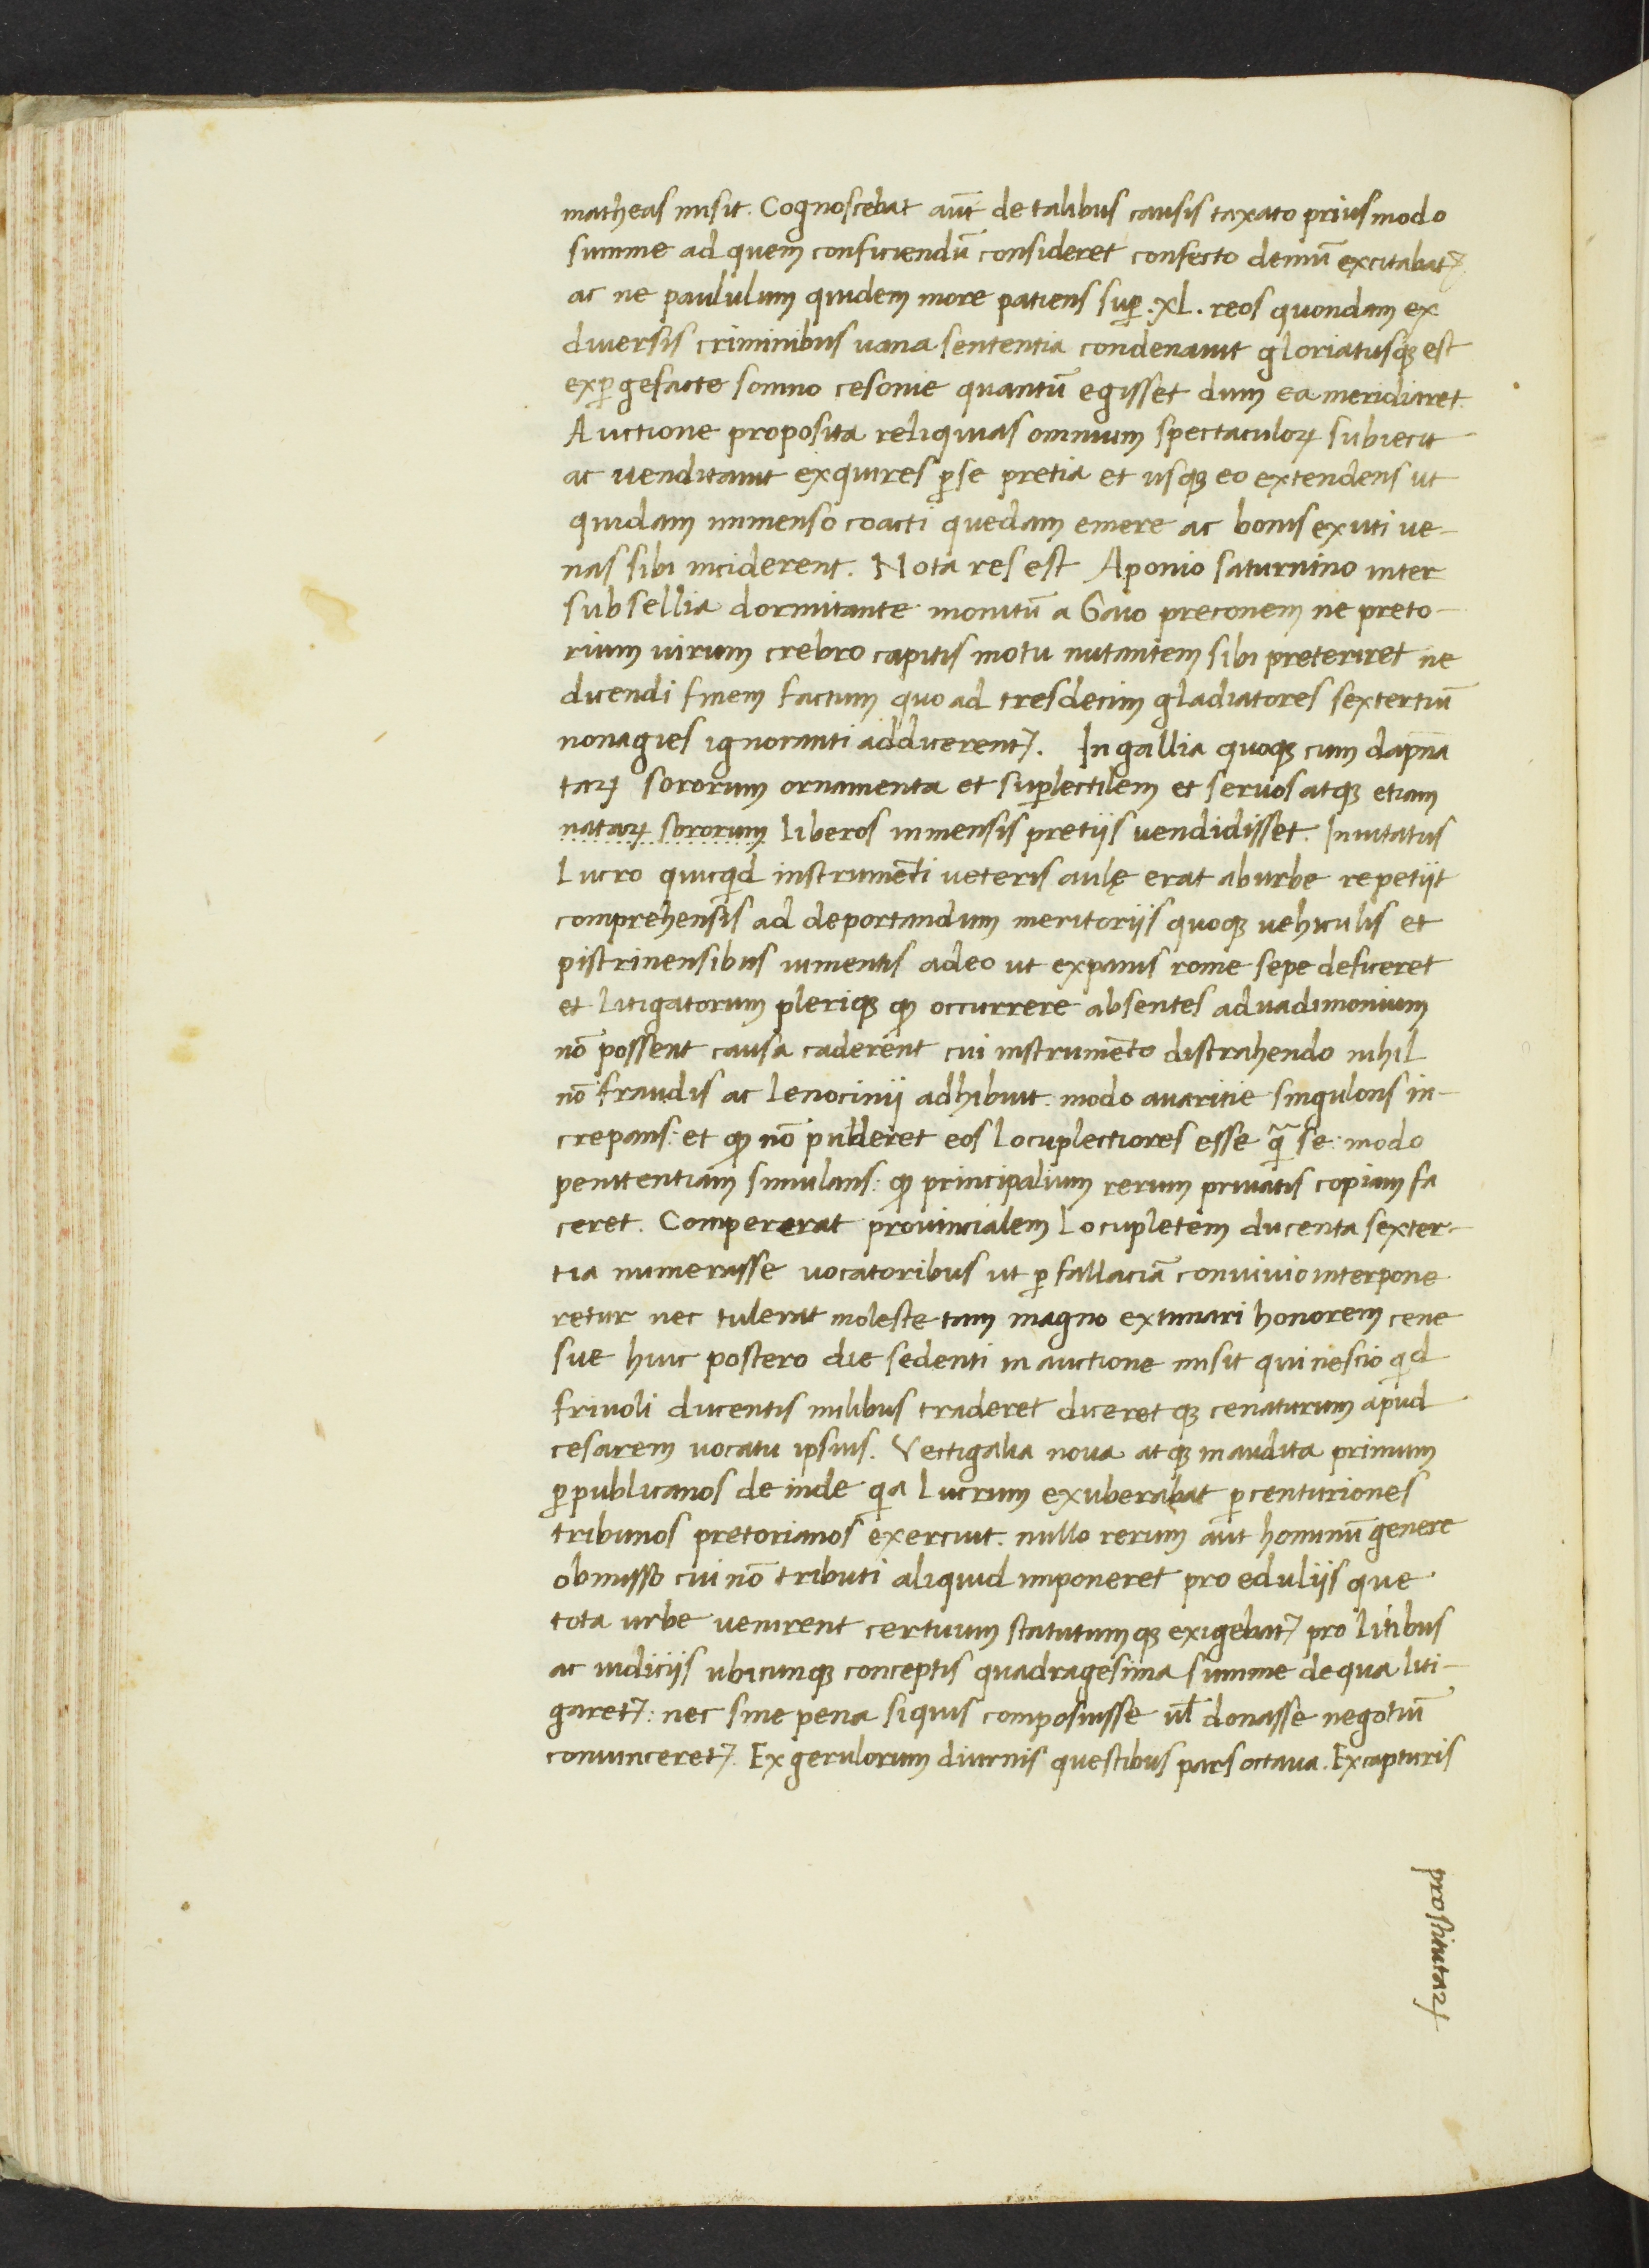 matheas misit. Cognoscebat aūt de talibus causis taxato prius modo
summe ad quem conficiendū consideret confecto demū excitabat᷑
ac ne paululum quidem more patiens suꝑ .xl. reos quondam ex
diversis criminibus vana sententia condenavit gloriatusqꝫ est
exꝑgefacte somno cesonie quantū egisset dum ea meridiaret.
Auctione proposita reliquias omnium spectaculoꝝ subiecit
ac venditavit exquires ꝑ se pretia et usqꝫ eo extendens ut
quidam immenso coacti quedam emere ac bonis exuti ve-
nas sibi inciderent. Nota res est Aponio saturnino inter
subsellia dormitante monitū a Gaio preconem ne preto-
rium virum crebro capitis motu nutantem sibi preteriret ne
dicendi finem factum quo ad tresdecim gladiatores sextertiū
nonagies ignoranti addicerent᷑. In gallia quoqꝫ cum dapna
taꝝ sororum ornamenta et suꝑlectilem et servos atqꝫ etiam
nataꝝ sororum liberos inmensis pretijs vendidisset. Invitatus
Lucro quicqͥd instrumēti veteris aulę erat ab urbe repetijt
comprehensis ad deportandum meritorijs quoqꝫ vehiculis et
pistrinensibus iumentis adeo ut expanis rome sepe deficeret
et litigatorum pleriqꝫ ꝙ occurrere absentes ad vadimonium
nō possent causa caderent cui instrumēto distrahendo nihil
nō fraudis ac lenocinij adhibuit: modo avaritie singulons in-
crepans: et ꝙ nō puderet eos locupletiores esse qᷓ se: modo
penitentiam simulans: ꝙ principalium rerum privatis copiam fa
ceret. Compererat provincialem locupletem ducenta sexter-
tia numerasse vocatoribus ut ꝑ fallaciā convivio interpone
retur nec tulerat moleste tam magno extimari honorem cene
sue huic postero die sedenti in auctione misit qui nescio qͥd
frivoli ducentis milibus traderet diceretqꝫ cenaturum apud
cesarem vocatu ipsius. Vectigalia nova atqꝫ inaudita primum
ꝑ publicanos de inde qͥa lucrum exuberabat ꝑ centuriones
tribunos pretorianos exercuit. nullo rerum aut hominū genere
obmisso cui nō tributi aliquid imponeret pro edulijs que
tota urbe venirent certuum statutumqꝫ exigebat᷑ pro litibus
ac iudicijs ubicunqꝫ conceptis quadragesima summe de qua liti-
garet᷑: nec sine pena siquis composuisse vl̄ donasse negotiū
convinceret᷑. Ex gerulorum diurnis questibus pars octava. Ex capturis
prostitutaꝝ